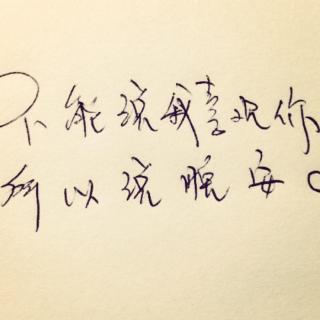 不能说我喜欢你
所以说晚安。